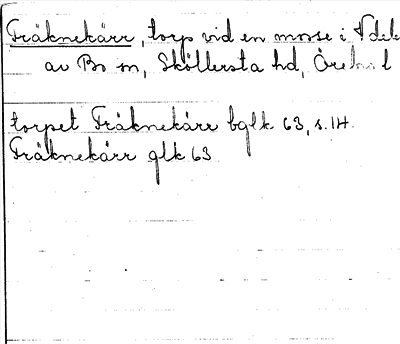 Fräknekärr, torp vid en mosse i V del
av Bo sn, Sköllersta hd, Örebro l
torpet Fräknekärr bglk 63, s. 114
Fräknekärr glk 63